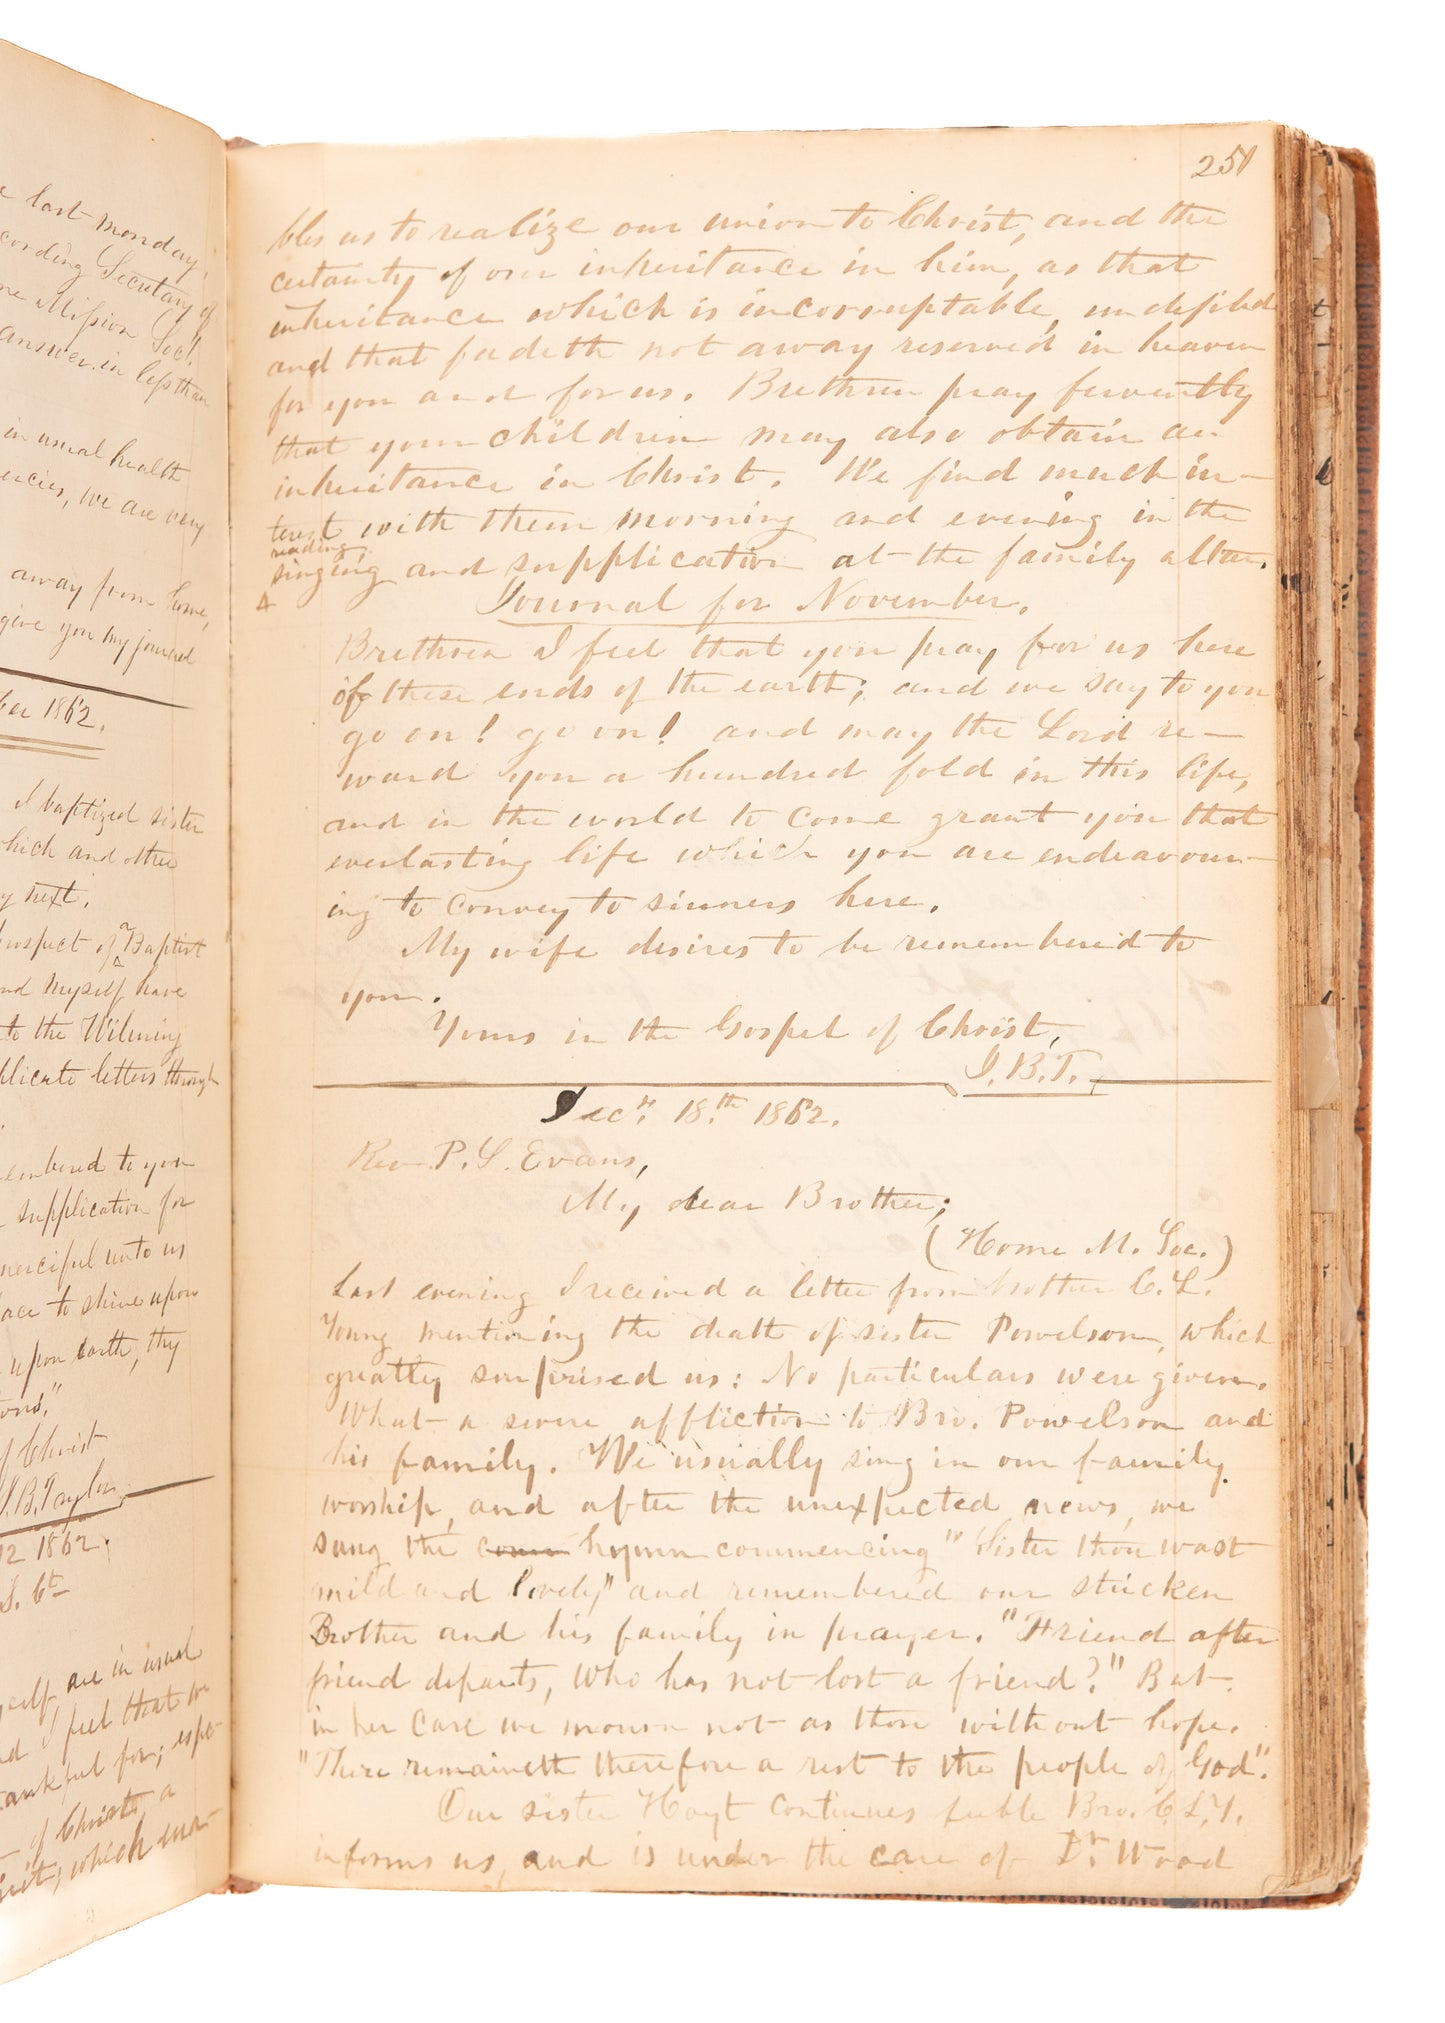 e last monday,
cording Secretary of
me Mission Soct.
answer in less than
in usual health
encies, we are very
away from home,
give you my journal
ber 1862.
I baptized sister
which and other
y next.
prospect of a Baptist
and myself have
to the Wilming
plicate letters through
embered to you
supplication for
merciful unto us
face to shine upon
upon earth, thy
ons."
of Christ
J. B. Taylor.
12 1862,
S. Ct
yself are in usual
nd I feel that we
thankful for; espe-
of Christ a
which was
251
bles us to realize our union to Christ, and the
certainty of our inheritance in him, as that
inheritance which is incorruptable, undefiled
and that fadeth not away reserved in heaven
for you and for us. Brethren pray fervently
that your children may also obtain an
inheritance in Christ. We find much in-
terest with them morning and evening in the
reading,
singing and supplication at the family altar.
4 Journal for November.
Brethren I feel that you pray for us here
of these ends of the earth; and we say to you
go on! go on! and may the Lord re-
ward you a hundred fold in this life,
and in the world to come grant you that
everlasting life which you are endeavour-
ing to convey to sinners here.
My wife desires to be remembered to
you.
Yours in the Gospel of Christ,
J. B. T.
Decr. 18.th 1862.
Rev. P. S. Evans,
My dear Brother;
(Home M. Soc.)
Last evening I received a letter from brother C. L.
Young mentioning the death of sister Powelson, which
greatly surprised us: No particulars were given.
What a severe affliction to Bro. Powelson and
his family. We usually sing in our family
worship, and after the unexpected news, we
sung the hymn commencing "Sister thou wast
mild and lovely" and remembered our stricken
Brother and his family in prayer. "Friend after
friend departs, Who has not lost a friend?" But
in her case we mourn not as those without hope.
"There remaineth therefore a rest to the people of God".
Our sister Hoyt continues feeble Bro. C. L. Y.
informs us, and is under the care of Dr. Wood